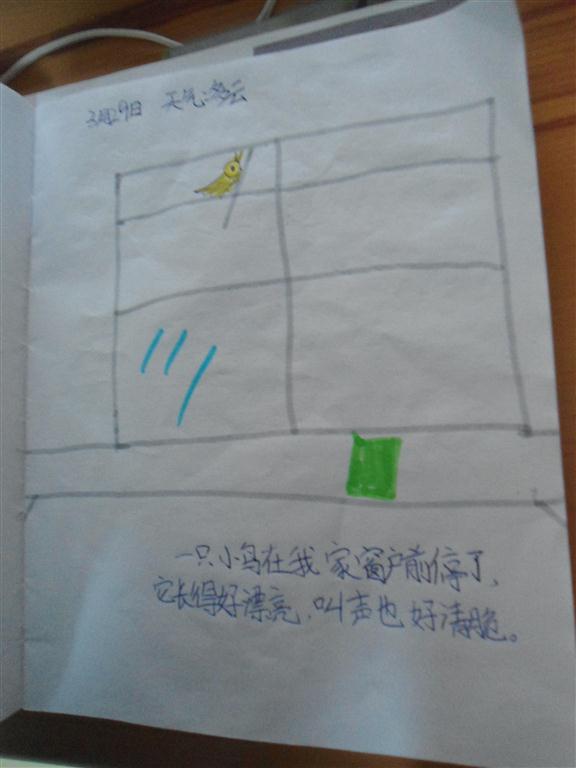 3月29日 天气:多云
一只小鸟在我家窗户前停了,
它长得好漂亮,叫声也好清脆。